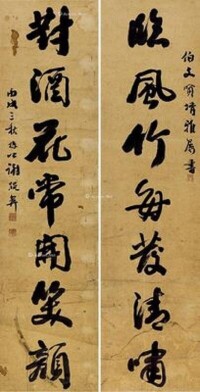 伯文賢情雅屬書
臨風竹每發清嘯
對酒花常開笑顏
丙戌三秋
謝從寧